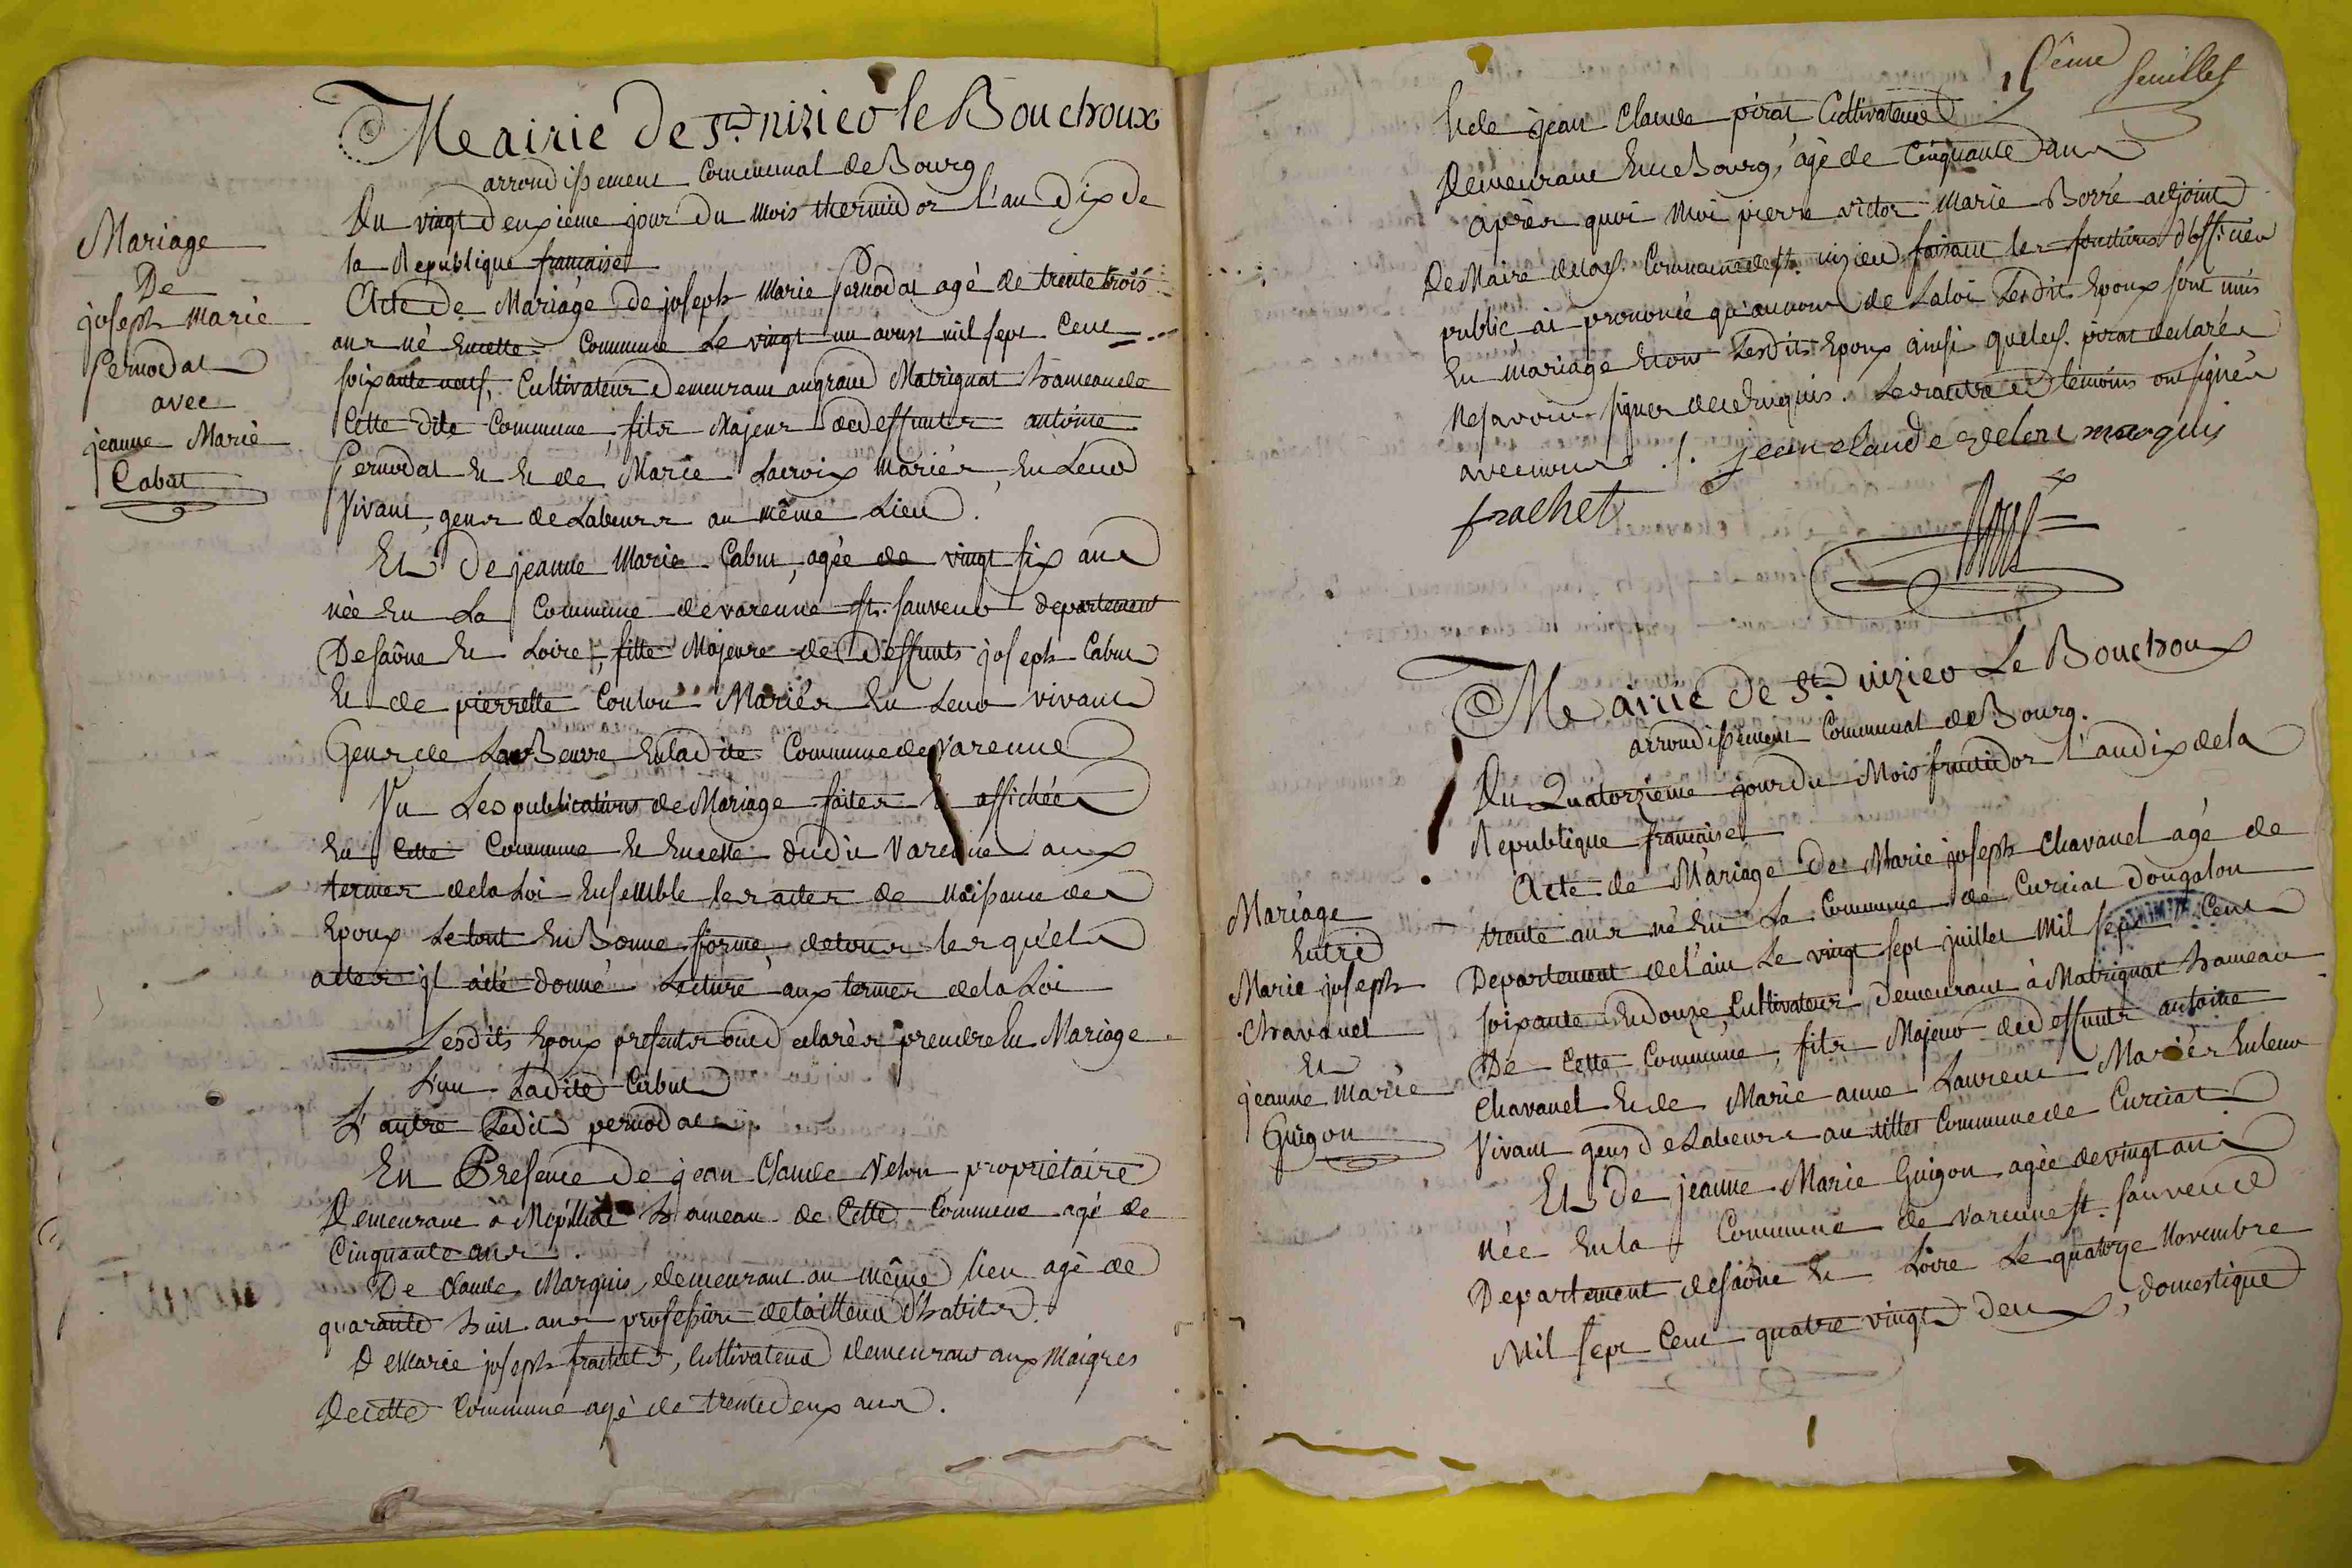 Mairie de St. nizier le Bouchoux
arrondissement Communal de Bourg
Du vingt deuxieme jour du mois thermidor l'an dix de
la Republique francaise
Acte de Mariage de joseph Marie Pernodat agé de trente trois
ans né En cette Commune Le vingt un avril mil sept Cent
soixante neuf, Cultivateur Demeurant au grand Matrignat hameau de
Cette dite Commune, fils Majeur de deffunts antoine
Pernodat Et de Marie Lacroix mariés, En Leur
Vivant, gens de Labeurs au même Lieu.
Et De jeanne Marie Cabut, agée de vingt six ans
née En La Commune de varenne st. sauveur departement
De saône Et Loire, fille Majeure de deffunts joseph Cabut
Et de pierrette Coulon Mariés En Leur vivant
Gens de Labeurre En ladite Commune de Varenne
Vu Les publications de Mariage faites Et affichées
En Cette Commune Et En celle dudit Varenne aux
termes de la Loi Ensemble les actes de Naissance des
Epoux Le tout En Bonne forme, de tous les quels
actes il à été donné Lecture aux termes de la Loi
Lesdits Epoux presents ont declarés prendre En Mariage
L'un Ladite Cabut
L'autre Ledit pernodat
En Presence De jean Claude Velon proprietaire
Demeurant à Mépillat hameau de Cette Commune agé de
Cinquante ans
De claude Marquis, demeurant au même lieu agé de
quarante huit ans profession de tailleur d'habits
De Marie joseph frachet, Cultivateur demeurant aux Maigres
De cette Commune agé de trente deux ans.
Mariage
De
joseph Marie
Pernodat
avec
jeanne Marie
Cabat
15ème feuillet
Et de jean Claude pirat Cultivateur
Demeurant En ce Bourg, agé de Cinquante ans
après quoi Moi pierre victor Marie Borré adjoint
De Maire de la Commune de st. nizier faisant les fonctions d'officier
public, ai prononcé qu'au nom de La loi Lesdits Epoux sont unis
En mariage Et ont Lesdits Epoux ainsi que led. pirat declarés
Ne savoir signer de ce Enquis. Les autres temoins ont signés
avec nous ./. jean claude velon marquis
frachet
Mairie de St. nizier Le Bouchoux
arrondissement Communal de Bourg.
Du Quatorzieme jour du Mois fructidor l'an dix de la
Republique francaise
Acte de Mariage De Marie joseph Chavanel agé de
trente ans né En La Commune de Curciat Dongalon
Departement de l'ain Le vingt sept juillet Mil sept Cent
soixante Et douze, Cultivateur, demeurant à Matrignat hameau
De Cette Commune, fils Majeur de deffunts antoine
Chavanel Et de Marie anne Laurent Mariés En leur
Vivant gens De Labeurs au tillet Commune de Curciat
Et De jeanne Marie Guigon agée de vingt ans
née En la Commune de Varenne st. sauveur
Departement de saône Et Loire Le quatorze Novembre
Mil sept Cent quatre vingt Deux, domestique
Mariage
Entre
Marie joseph
Chavanel
Et
jeanne Marie
Guigon